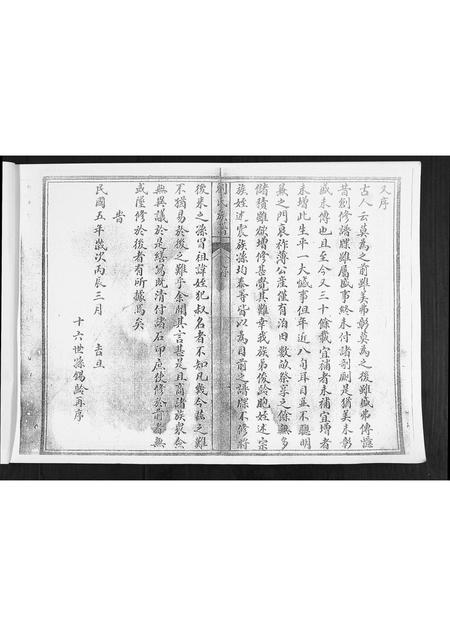 又序
古人云莫為之前雖美弗彰莫為之後雖盛弗傳憶
昔創修譜牒雖屬盛事終未付諸剞劂是猶美未彰
盛未傳也且至今又三十餘載宜補者未補宜增者
未增此生平一大憾事但年近八旬耳目並不聰明
兼之門衰祚薄公產僅有泊田數畝祭享之餘無多
儲積雖欲增修甚覺其難幸我族弟俊 胞姪述宗
族姪述震族孫均泰等皆以為目前之譜牒不修將
劉氏族譜
後來之孫冒祖諱姪犯叔名者不知凡幾今茲之難
不猶易於後之難乎余聞其言甚是且商諸族眾僉
無異議於是繕寫既清付諸石印庶後修於前者無
或墜修於後者有所據焉矣
旹
民國五年歲次丙辰三月 吉旦
十六世孫錫 再序